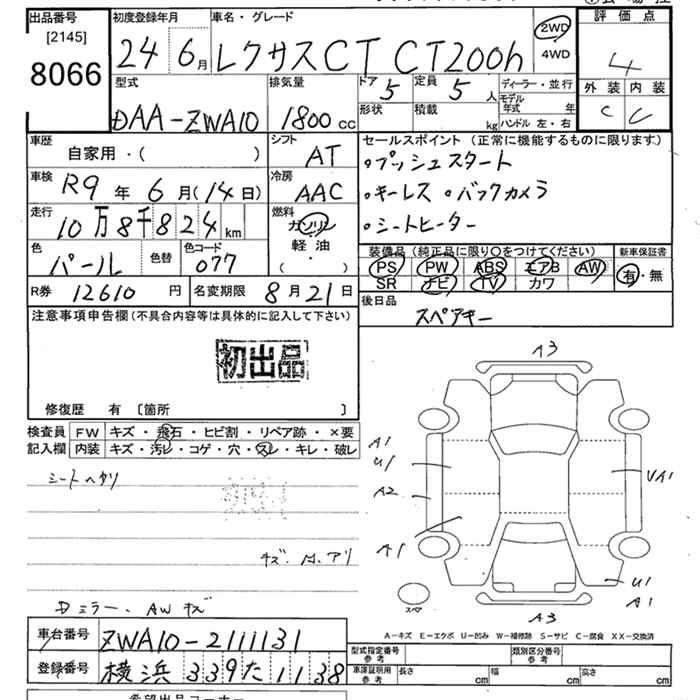 出品番号 初度登録年月 車名・グレード 評価点
[2145]
8066
24 6月 レクサスCT CT200h 2WD 4WD 4
外装 内装
C C
型式 排気量 ドア 定員 ディーラー・並行
DAA-ZWA10 1800cc 5 5人 モデル年式 年
形状 積載 kg ハンドル 左・右
車歴 シフト セールスポイント (正常に機能するものに限ります)
自家用・( ) AT ・プッシュスタート
車検 冷房 ・キーレス ・バックカメラ
R9年6月(14日) AAC ・シートヒーター
走行 燃料
10万8千824km ガソリン
軽油
・
( )
色 色替 色コード
パール 077
装備品 (純正品に限り〇をつけてください) 新車保証書
PS PW ABS エアB AW 有・無
SR ナビ TV カワ
R券 12610円 名変期限 8月21日 後日品
スペアキー
注意事項申告欄(不具合内容等は具体的に記入して下さい)
初出品
修復歴 有 [箇所 ]
検査員 FW キズ・飛石・ヒビ割・リペア跡・×要
記入欄 内装 キズ・汚レ・コゲ・穴・スレ・キレ・破レ
シートヘタリ
Dミラー、AWキズ
A3
A1
U1
A2
A1
UA1
U1
A1
スペア
A3
A-キズ E-エクボ U-凹み W-補修跡 S-サビ C-腐食 XX-交換済
車台番号 ZWA10-2111131
登録番号 横浜 339 た 1138
型式指定番号 参考 類別区分番号 参考
車庫証明用 参考 長さ cm 幅 cm 高さ cm
希望出品コーナー